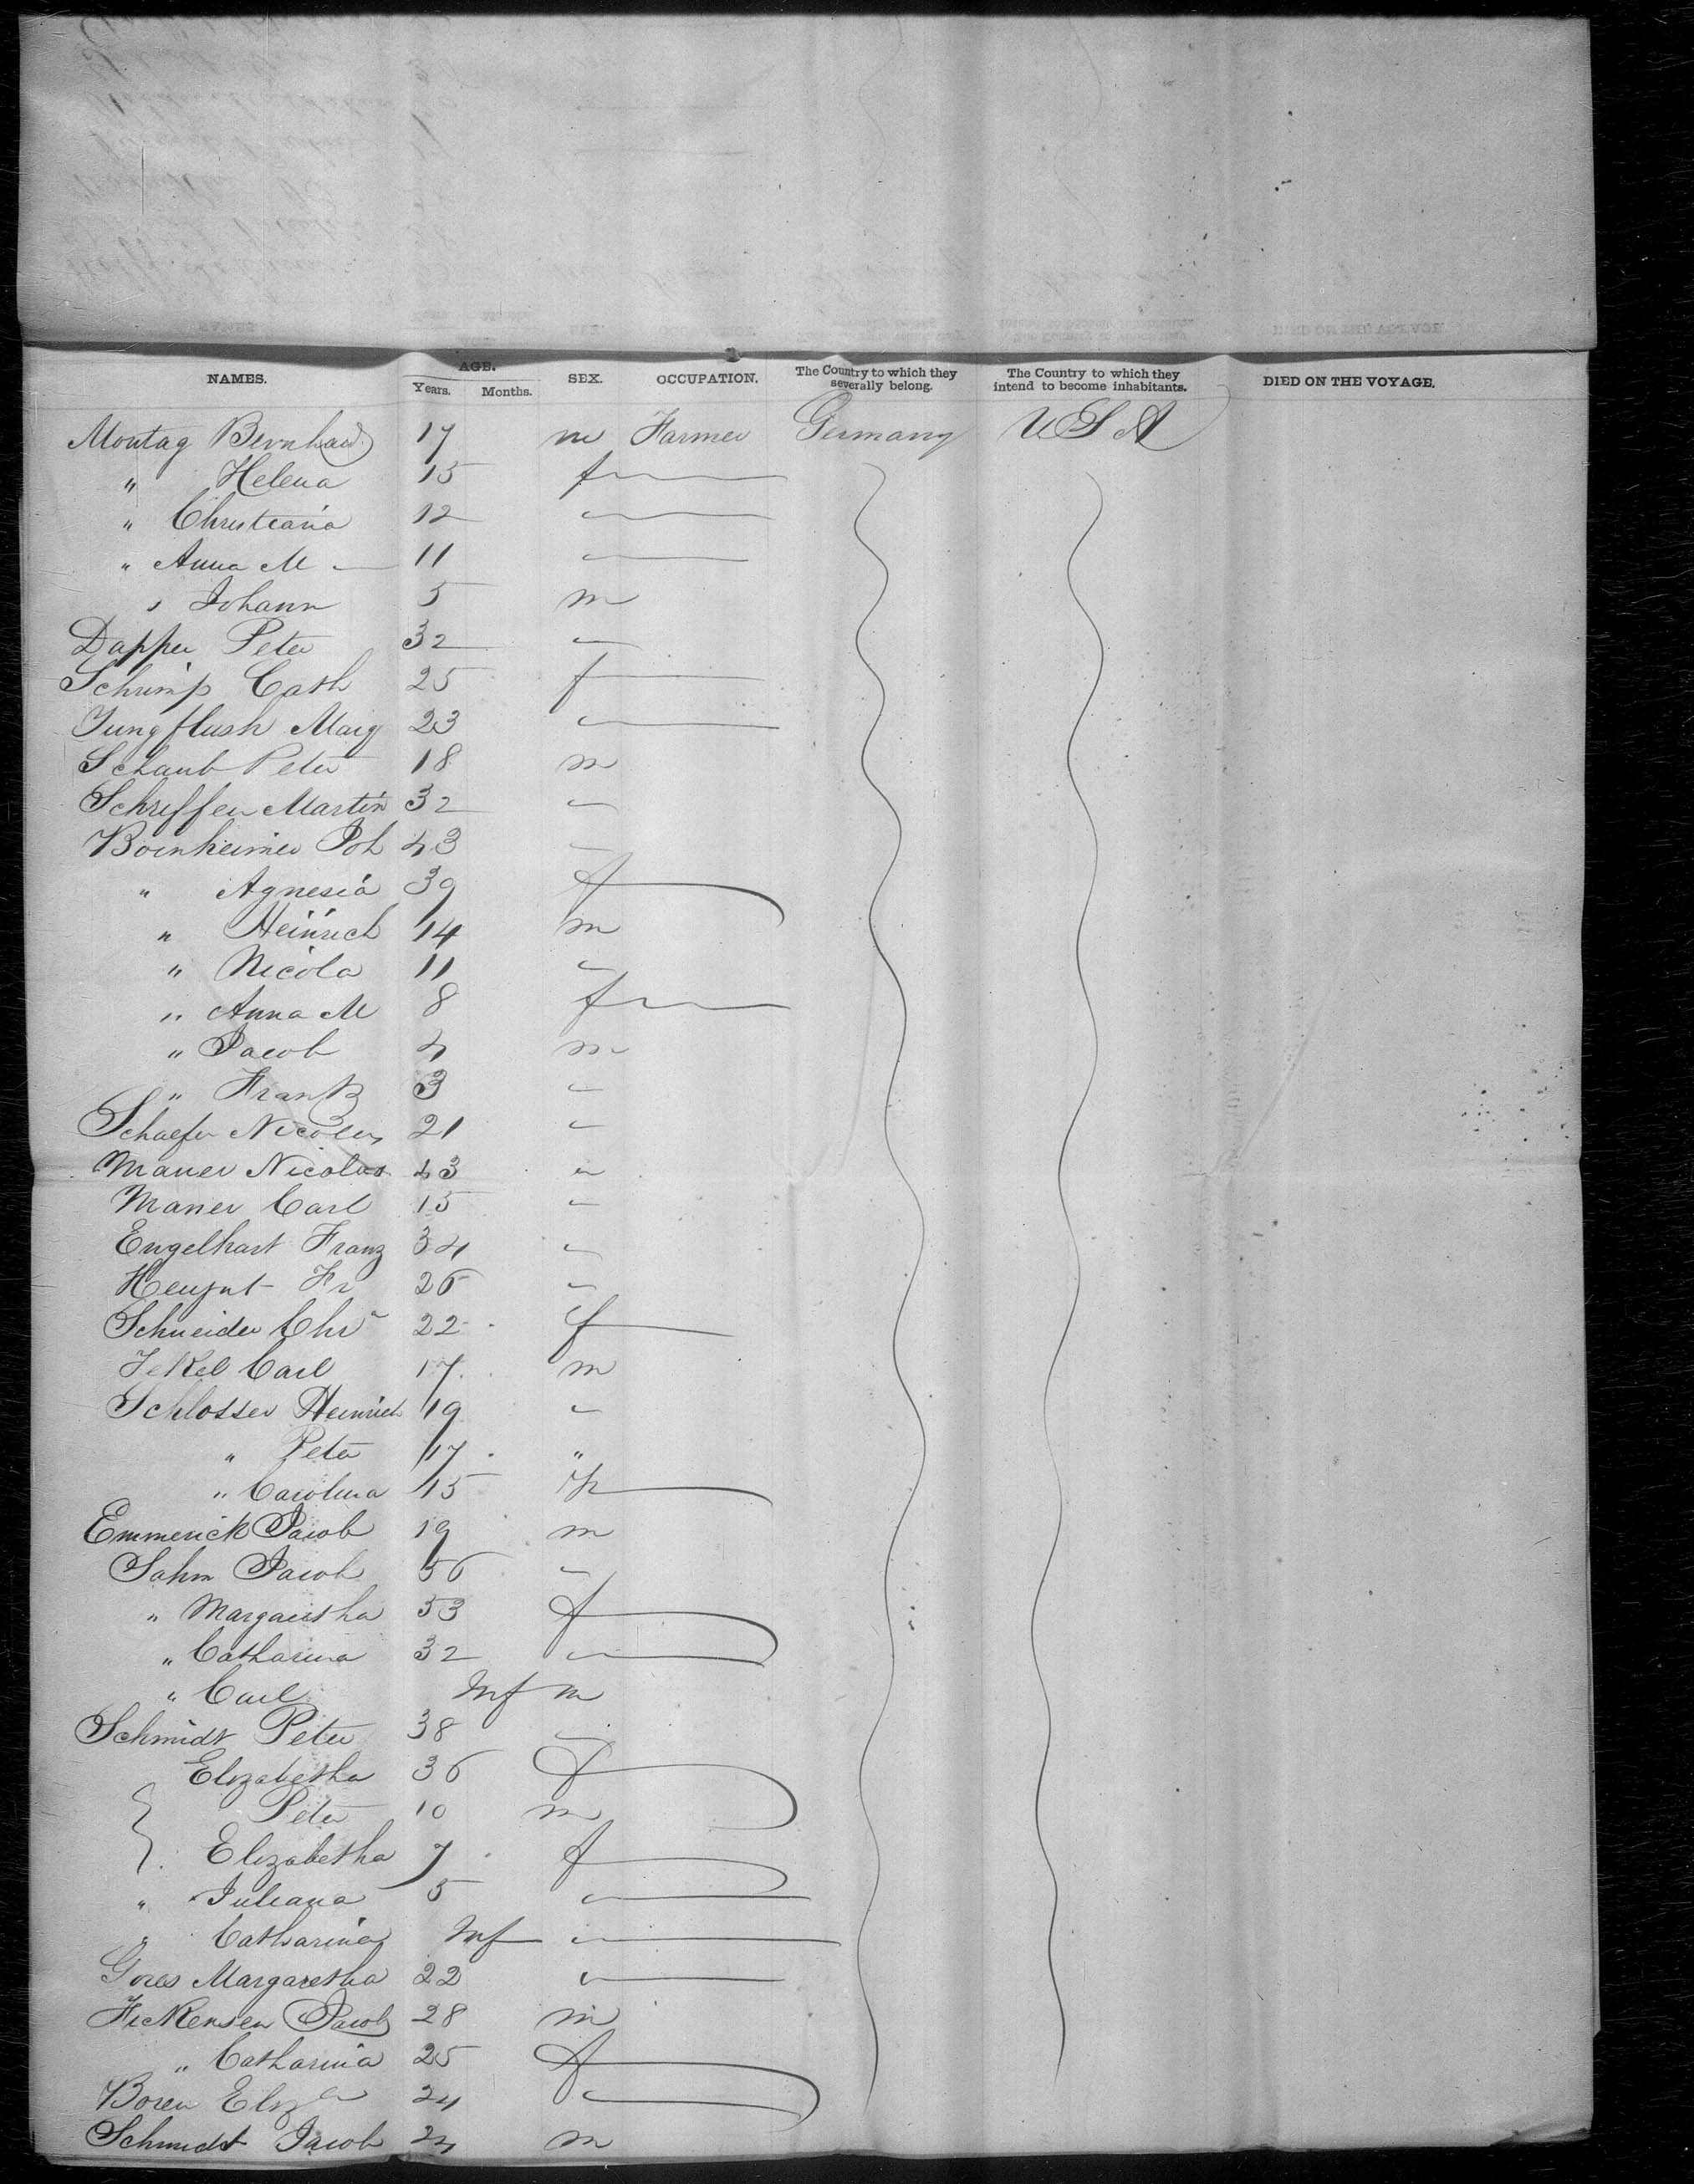 NAMES. AGE. SEX. OCCUPATION. The Country to which they severally belong. The Country to which they intend to become inhabitants. DIED ON THE VOYAGE.
Years. Months.
Montag Bernhard 17 m Farmer Germany U S A
" Helena 15 f
" Christiana 12 "
" Anna M 11 "
" Johann 5 m
Dapper Peter 32 "
Schimp Cath 25 f
Jungflush Marg 23 "
Schaub Peter 18 m
Schreffer Martin 32 "
Bornheimer Joh 43 "
" Agnesia 39 f
" Heinrich 14 m
" Nicola 11 "
" Anna M 8 f
" Jacob 4 m
" Frank 3 "
Schaefer Nicolas 21 "
Mauer Nicolas 43 "
Mauer Carl 15 "
Engelhart Franz 34 "
Fr 26 "
Schneider Chr 22 f
Jekel Carl 17 m
Schlosser Heinrich 19 "
" Peter 17 "
" Carolina 15 f
Emmerick Jacob 19 m
Sahm Jacob 56 "
" Margaretha 53 f
" Catharina 32 "
" Carl Inf m
Schmidt Peter 38 "
Elizabetha 36 f
Peter 10 m
Elizabetha 7 f
" Juliana 5 "
" Catharina Inf "
Gores Margaretha 22 "
Fickensen Jacob 28 m
" Catharina 25 f
Boren Eliza 24 "
Schmidt Jacob 24 m